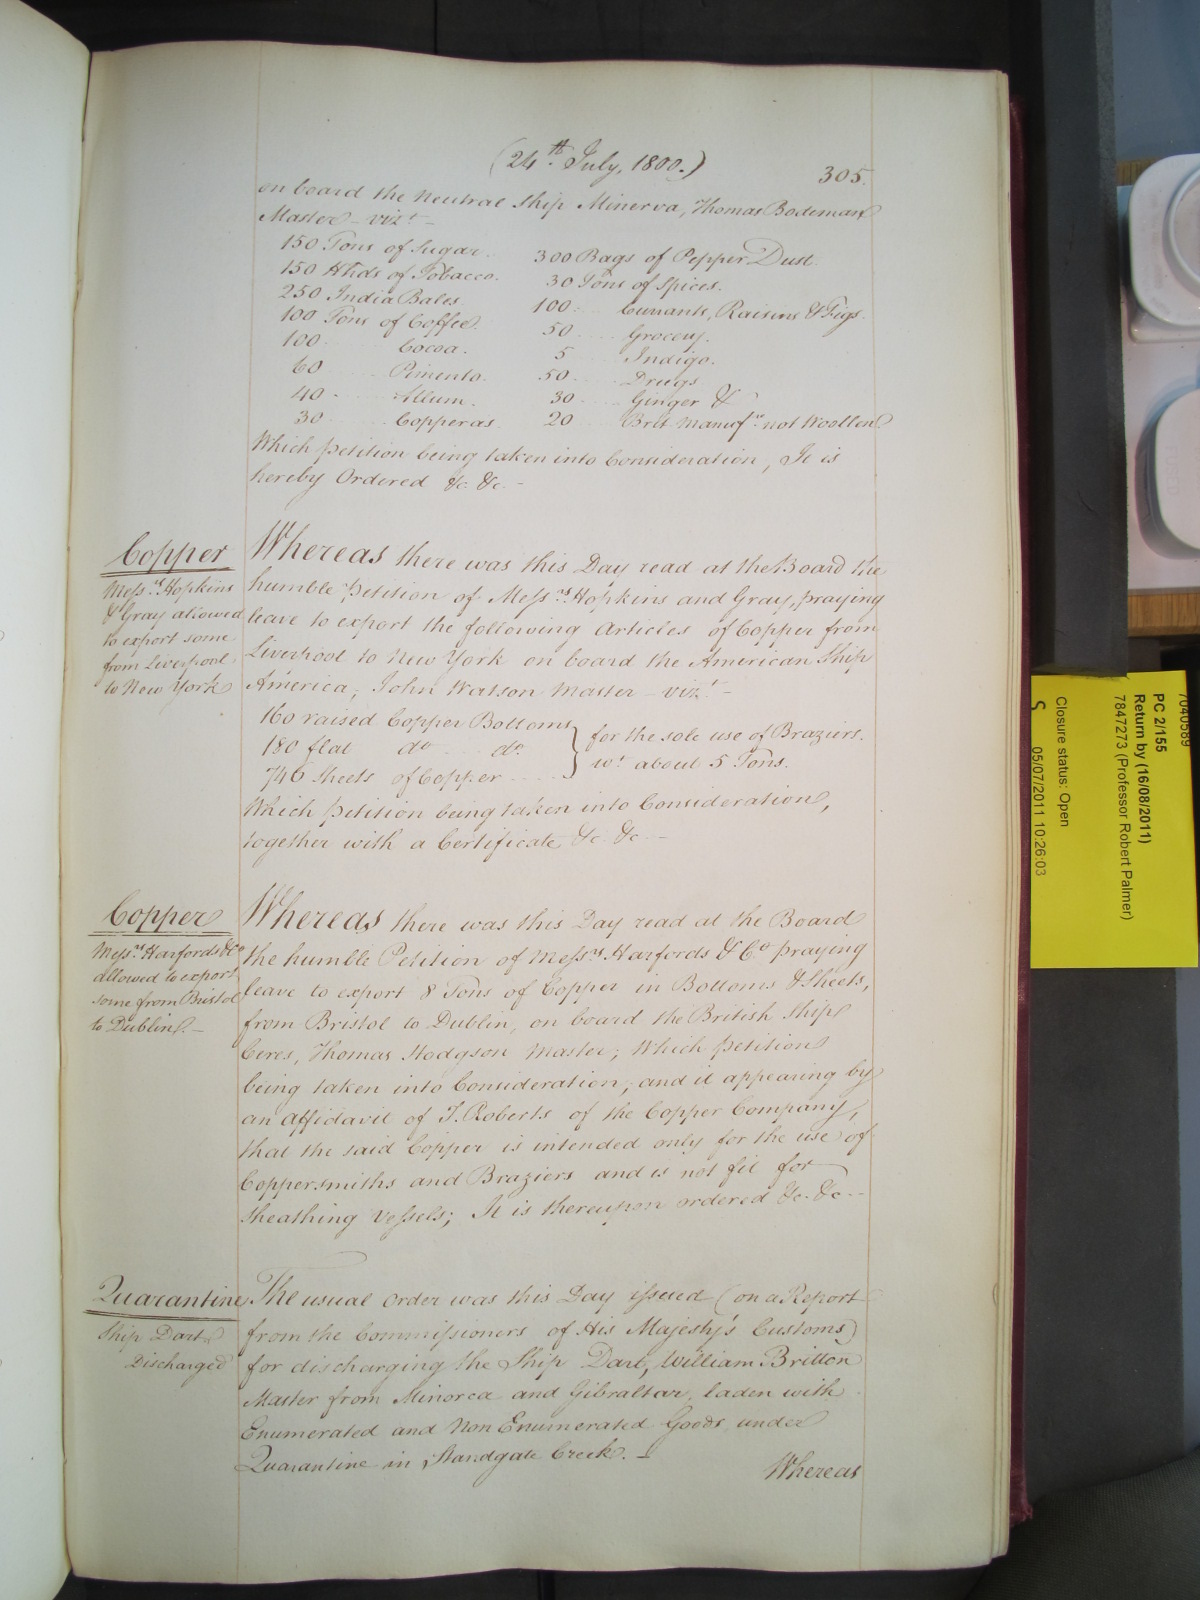 (24th July, 1800.)
305.
on board the Neutral Ship Minerva, Thomas Bodeman
Master – vizt –
150 Tons of Sugar.
150 Hhds of Tobacco.
250 India Bales
100 Tons of Coffee.
100 Cocoa.
60 Pimento.
40 Allum.
30 Copperas
300 Bags of Pepper Dust.
30 Tons of Spices.
100 Currants, Raisins & Figs.
50 Grocery.
5 Indigo.
50 Drugs
30 Ginger &
20 Brit Manufre not Woollen
Which petition being taken into Consideration, It is
hereby Ordered &c. &c. –
Copper
Messrs Hopkins
& Gray allowed
to export some
from Liverpool
to New York
Whereas there was this Day read at the Board the
humble Petition of Messrs Hopkins and Gray, praying
leave to export the following Articles of Copper from
Liverpool to New York on board the American Ship
America, John Watson Master – vizt –
160 raised Copper Bottoms
180 flat do do
746 Sheets of Copper
for the sole use of Braziers.
wt about 5 Tons.
Which petition being taken into Consideration,
together with a Certificate &c. &c. –
Copper
Messrs Harfords & Co
allowed to export
some from Bristol
to Dublin. –
Whereas there was this Day read at the Board
the humble Petition of Messrs Harfords & Co praying
leave to export 8 Tons of Copper in Bottoms & Sheets,
from Bristol to Dublin, on board the British Ship
Ceres, Thomas Hodgson Master; Which petition
being taken into Consideration, and it appearing by
an affidavit of J. Roberts of the Copper Company,
that the said Copper is intended only for the use of
Coppersmiths and Braziers and is not fit for
sheathing Vessels; It is thereupon ordered &c. &c. –
Quarantine
Ship Dart
Discharged
The usual Order was this Day issued (on a Report
from the Commissioners of His Majesty's Customs)
for discharging the Ship Dart, William Britton
Master from Minorca and Gibraltar, laden with
Enumerated and Non Enumerated Goods, under
Quarantine in Standgate Creek. –
Whereas
7040589
PC 2/155
Return by (16/08/2011)
7847273 (Professor Robert Palmer)
Closure status: Open
S 05/07/2011 10:26:03